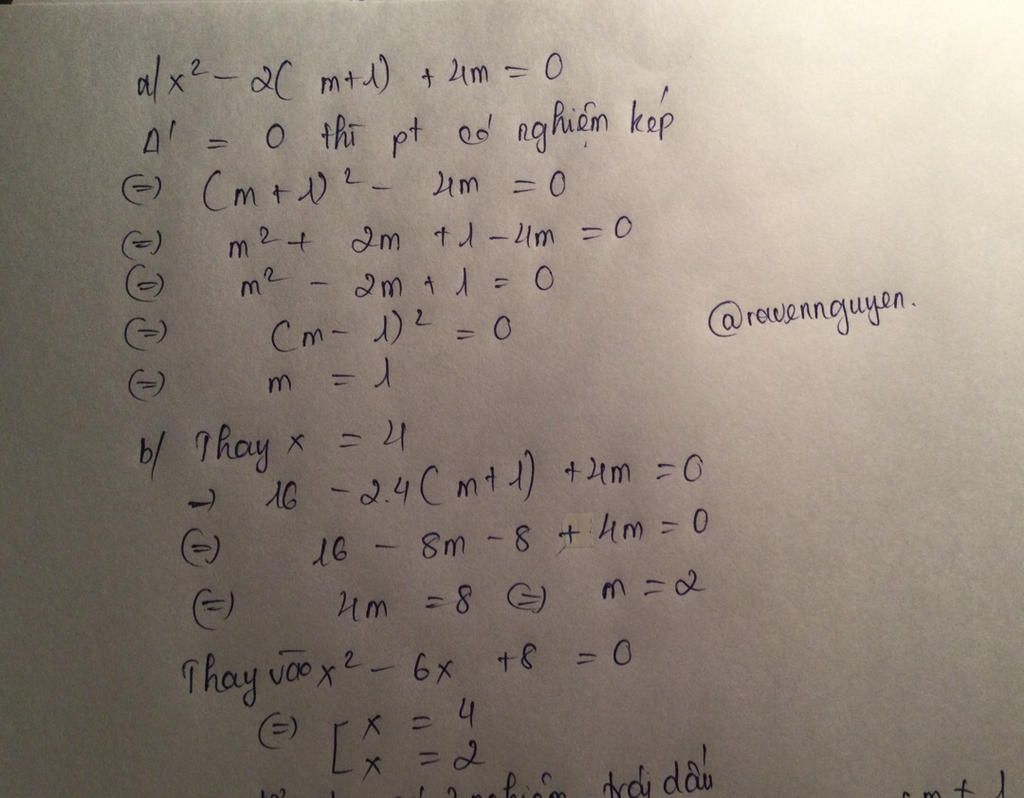 a/ x² - 2( m+1) + 4m = 0
Δ' = 0 thì pt có nghiệm kép
(=) (m + 1)² - 4m = 0
(=) m² + 2m + 1 - 4m = 0
(=) m² - 2m + 1 = 0
(=) (m - 1)² = 0
@ravennguyen.
(=) m = 1
b/ Thay x = 4
→ 16 - 2.4( m+1) + 4m = 0
(=) 16 - 8m - 8 + 4m = 0
(=) 4m = 8 (=) m = 2
Thay vào x² - 6x + 8 = 0
(=) [ x = 4
x = 2
nghiệm trái dấu
m + 1